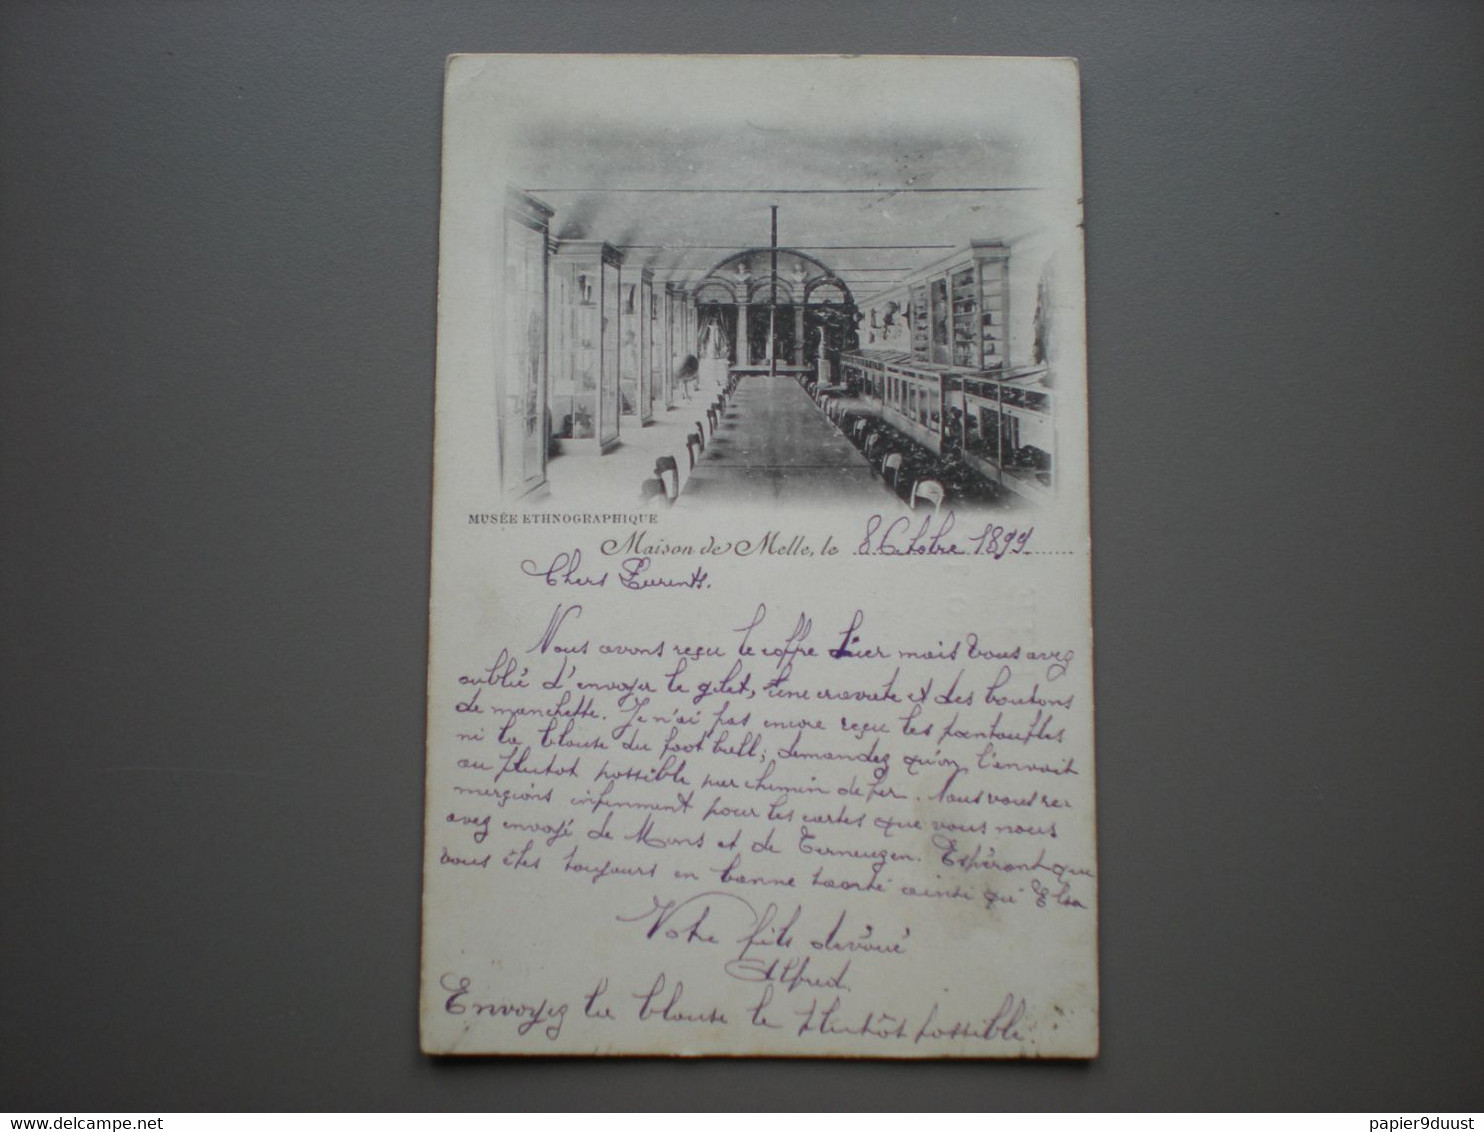 MUSÉE ETHNOGRAPHIQUE
Maison de Melle, le 8 Octobre 1899
Chers Parents.
Nous avons reçu le coffre hier mais vous avez
oublié d'envoyer le gilet, une cravate et des boutons
de manchette. Je n'ai pas encore reçu les pantoufles
ni la blouse du foot ball; demandez qu'on l'envoit
au plutot possible par chemin de fer. Nous vous re-
merçions infiniment pour les cartes que vous nous
avez envoyé de Mons et de Terneuzen. Espérant que
vous êtes toujours en bonne santé ainsi qu' Elsa
Votre fils dévoué
Alfred.
Envoyez la blouse le plutôt possible.
papier9duust